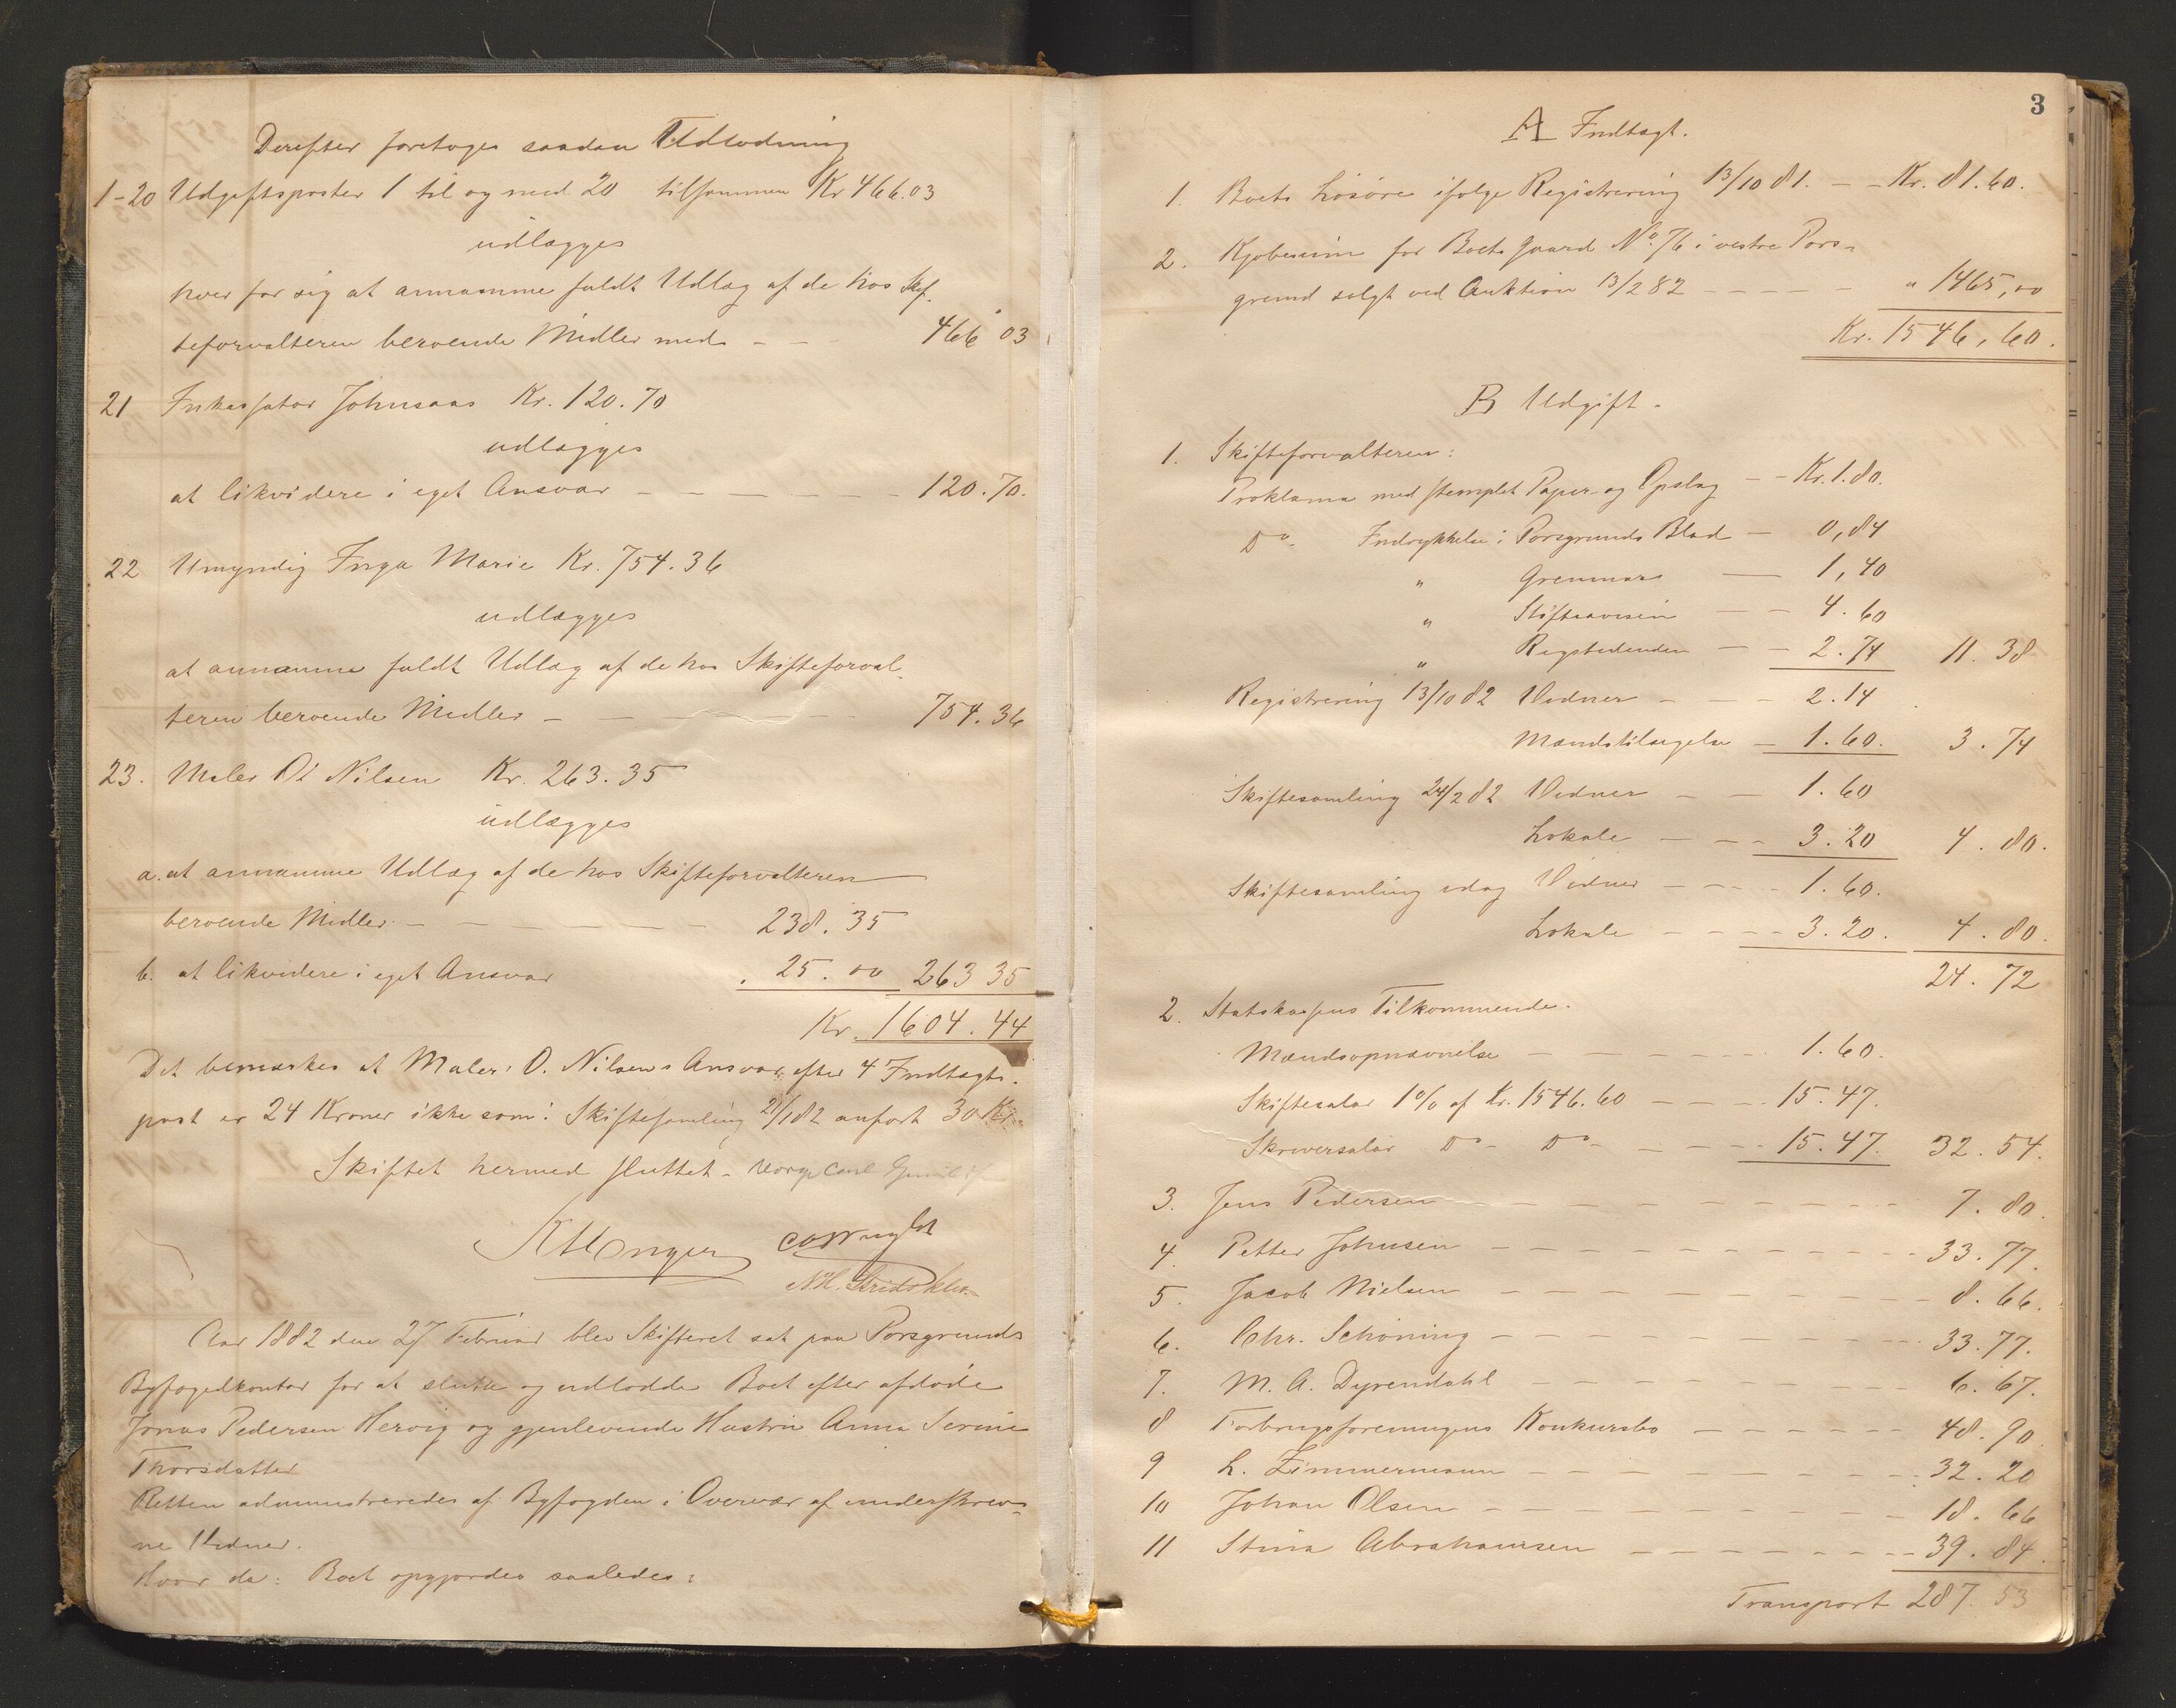 Derefter foretoges saadan Udlodning
1-20 Udgiftsposter 1 til og med 20 tilsammen Kr 466.03
udlægges
hver for sig at annamme fuldt Udlæg af de hos Skif-
teforvalteren beroende Midler med - - 466 03
21 Inkassator Johnsaas Kr. 120.70
udlægges
at likvidere i eget Ansvar - - - - - - 120.70.
22 Umyndig Inga Marie Kr. 754.36
udlægges
at annamme fuldt Udlæg af de hos Skifteforval-
teren beroende Midler - - - - - 754.36
23. Maler O. Nilsen Kr. 263.35
udlægges
a. at annamme Udlæg af de hos Skifteforvalteren
beroende Midler - - - - - - 238.35
b. at likvidere i eget Ansvar 25.00 263 35
Kr. 1604.44
Det bemærkes at Maler O. Nilsens Ansvar efter 4 Indtægts-
post er 24 Kroner ikke som i Skiftesamling 21/1 82 anført 30 Kr.
Skiftet hermed sluttet -
Aar 1882 den 27 Februar blev Skifteret sat paa Porsgrunds
Byfogedkontor for at slutte og udlodde Boet efter afdøde
Jonas Pedersen Hervig og gjenlevende Hustru Anna Serine
Thorsdatter
Retten administreredes af Byfogden i Overvær af underskrev-
ne Vidner.
Hvor da: Boet opgjordes saaledes:
3
A Indtægt.
1. Boets Løsøre ifølge Registrering 13/10 81. - - Kr. 81.60.
2. Kjøbesum for Boets Gaard No. 76 i vestre Pors-
grund solgt ved Auktion 13/2 82 - - - - - " 1465,00
Kr. 1546,60.
B Udgift.
1. Skifteforvalteren:
Proklama med stemplet Papir og Opslag - - Kr. 1.80.
Do. Indrykkelse i Porsgrunds Blad - 0,84
" Grenmar - 1,40
" Stiftsavisen - - 4.60
" Rigstidenden - - 2.74 11.38
Registrering 13/10 82 Vidner - - - 2.14
Mændstilsigelse - 1.60. 3.74
Skiftesamling 24/2 82 Vidner - - 1.60
Lokale - - - 3.20 4.80.
Skiftesamling idag Vidner - - - - 1.60.
Lokale - - - - 3.20. 4.80.
24.72
2. Statskassens Tilkommende.
Mændsopnævnelse - - - - - - 1.60.
Skiftesalar 1% af Kr. 1546.60 - - - - 15.47.
Skriversalar Do - Do - - - - - 15.47. 32.54.
3. Jens Pedersen - - - - - - - - - 7.80.
4. Petter Johnsen - - - - - - - - - - 33.77.
5. Jacob Nielsen - - - - - - - - - - 8.66.
6. Chr. Schöning - - - - - - - - - - 33.77.
7. M. A. Dyrendahl - - - - - - - - - 6.67.
8 Forbrugsforeningens Konkursbo - - - - - - 48.90
9 L. Zimmermann - - - - - - - - - 32.20
10 Johan Olsen - - - - - - - - - - 18.66
11 Stina Abrahamsen - - - - - - - - 39.84.
Transport 287.53